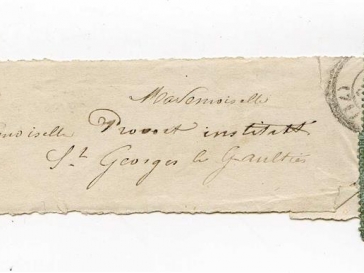 Mademoiselle
moiselle Prouet institutt
St Georges le Gaultier